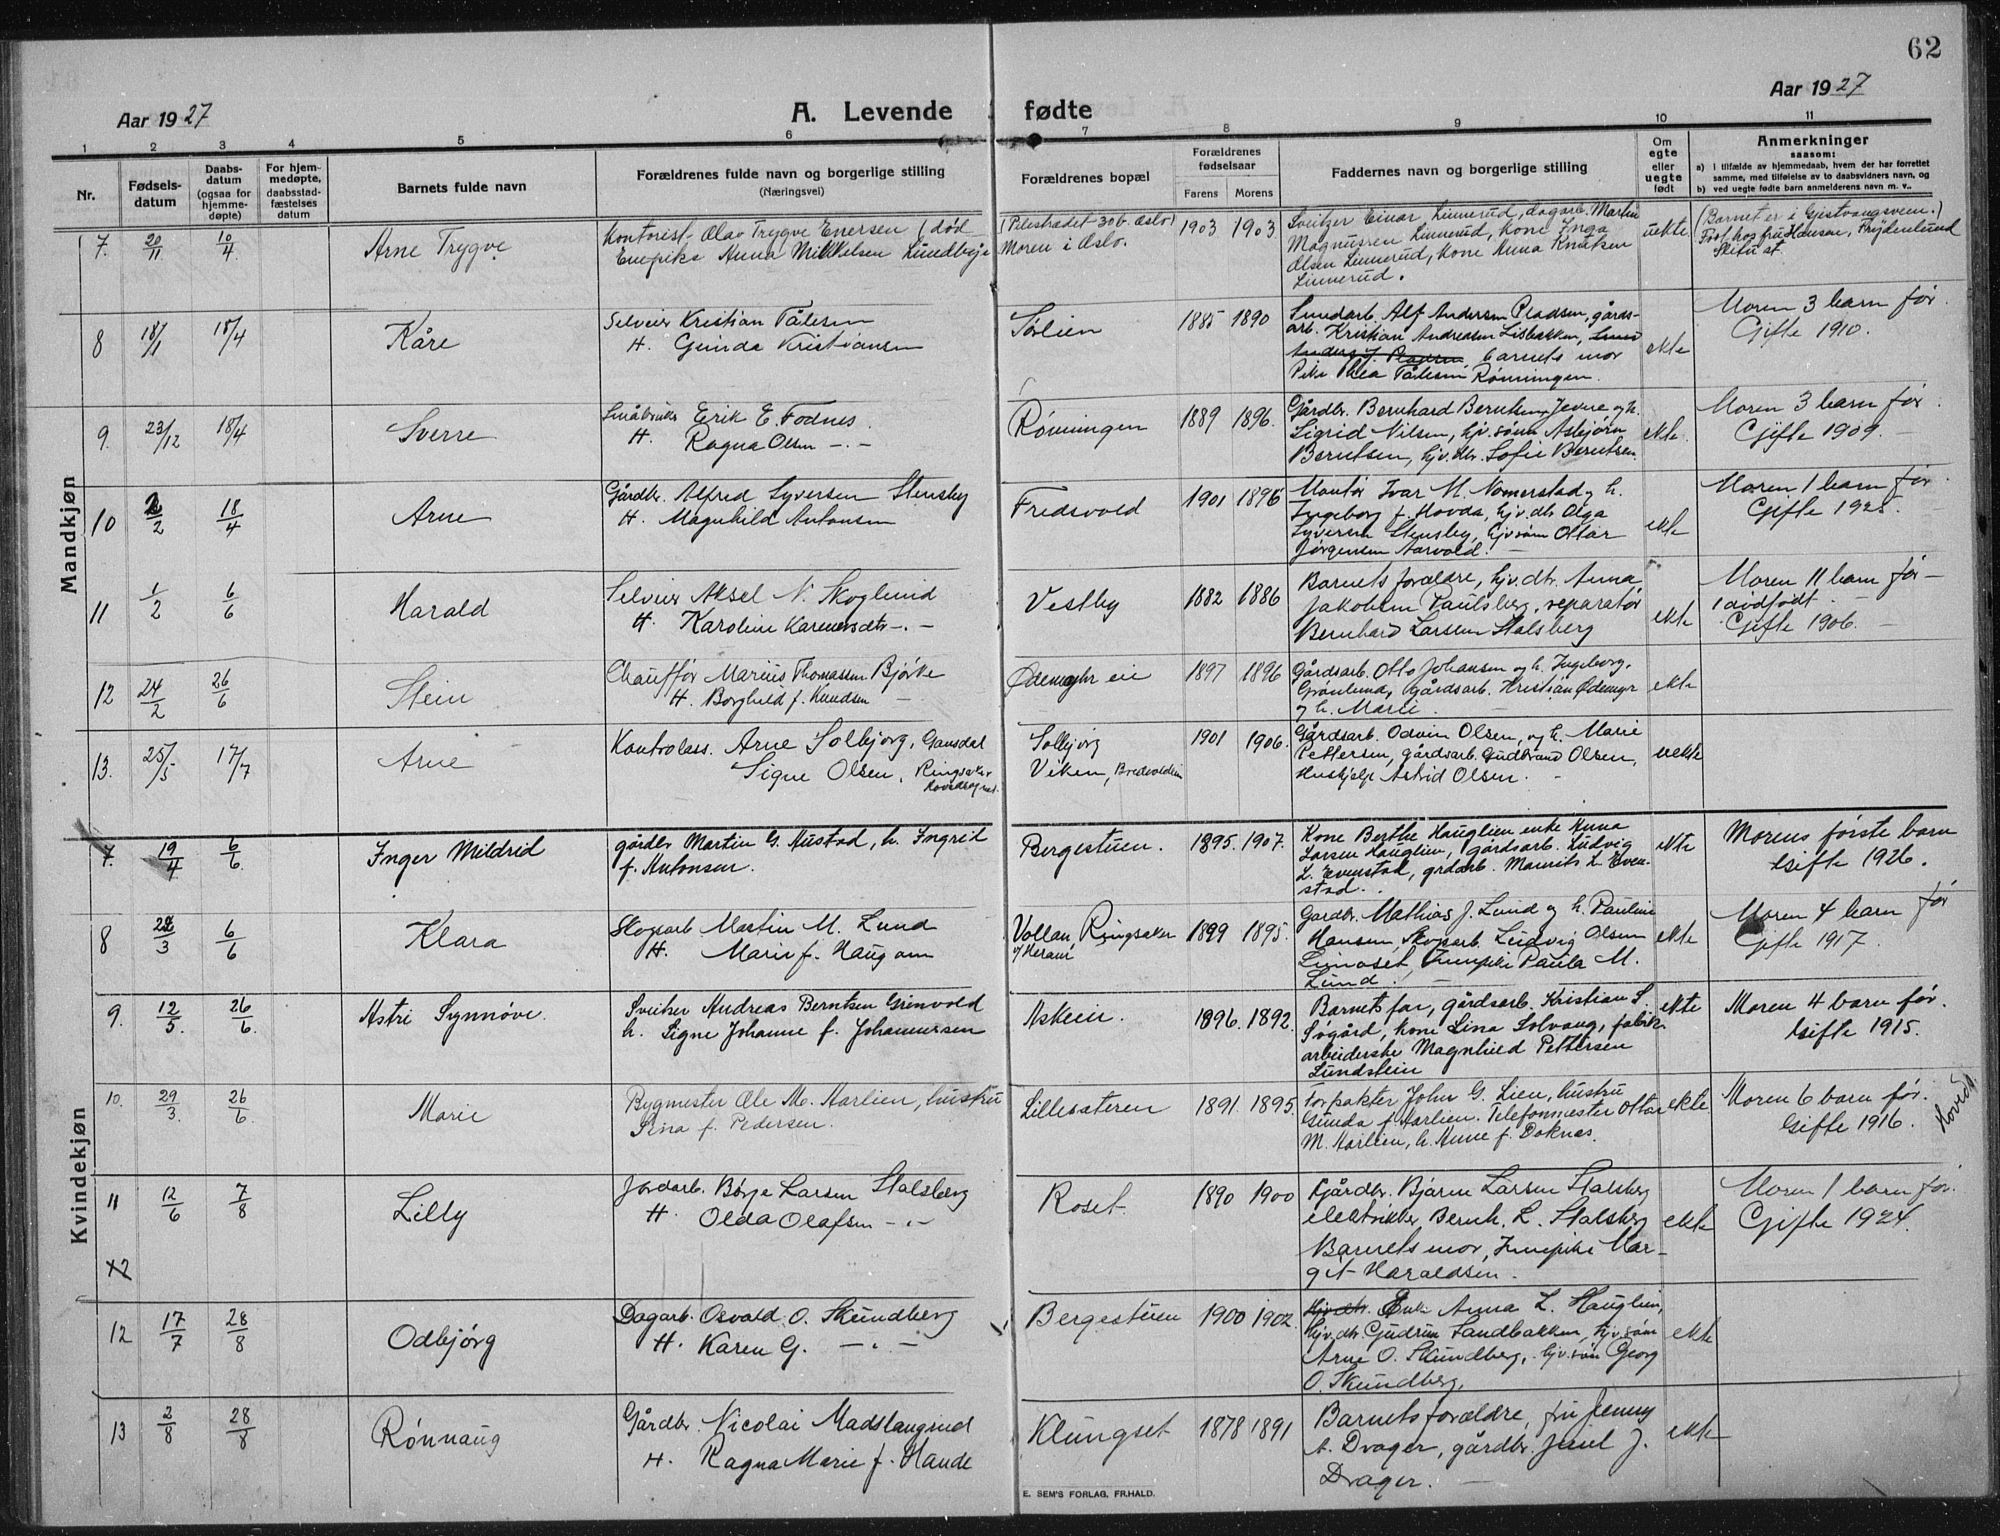 62
Aar 1927
A. Levende fødte
Aar 1927
1 2 3 4 5 6 7 8 9 10 11
Nr.
Fødsels-
datum
Daabs-
datum
(ogsaa for
hjemme-
døpte)
For hjem-
medøpte,
daabsstad-
fæstelses
datum
Barnets fulde navn
Forældrenes fulde navn og borgerlige stilling
(Næringsvei)
Forældrenes bopæl
Forældrenes
fødselsaar
Farens Morens
Faddernes navn og borgerlige stilling
Om
egte
eller
uegte
født
Anmerkninger
saasom:
a) i tilfælde av hjemmedaab, hvem der har forrettet
samme, med tilføielse av to daabsvidners navn, og
b) ved uegte fødte barn anmelderens navn m. v..
Mandkjøn
7. 20/11 10/4 Arne Trygve
Kontorist Olav Trygve Enersen (død
Enepike Anna Mikkelsen Lundbye
(Pilestrædet 30b. Oslo)
Moren i Oslo.
1903 1903
Sveitzer Einar Linnerud, dagarb. Martin
Magnussen Linnerud, kone Inga
Olsen Linnerud, kone Anna Knutsen
Linnerud.
uekte
(Barnet er i Gjestvangsveien.)
Post hos fru Hansen, Frydenlund
8 18/1 18/4 Kåre
Selveier Kristian Tålesen
H. Gunda Kristiansen
Sølien
1885 1890
Sundarb. Alf Andersen Pladsen, gårds-
arb. Kristian Andreasen Lisbakken,
Anders J. Pladsen, barnets mor
Pike Thea Tålesen Rønningen.
ekte
Moren 3 barn før.
Gifte 1910.
9 23/12 18/4 Sverre
Småbruker Erik E. Fodnes.
H. Ragna Olsen -.-
Rønningen
1889 1896.
Gårdbr. Bernhard Berntsen Jevne og h.
Sigrid Nilsen, hjv. sønn Asbjørn
Berntsen, hjv. dtr. Sofie Berntsen.
ekte.
Moren 3 barn før.
Gifte 1909.
10 2/2 18/4 Arne
Gårdbr. Alfred Syversen Stensby
H. Magnhild Antonsen
Fredsvold
1901 1896
Montør Ivar M. Nomerstad og h.
Ingeborg f. Hovda, hjv. dtr. Olga
Syversen Stensby, hjv søn Ottar
Jørgensen Aarvold.
ekte
Moren 1 barn før.
Gifte 1925.
11 1/2 6/6 Harald
Selveier Aksel N. Skoglund
H. Karoline Karenersdtr -.-
Vestby
1882 1886
Barnets forældre, hjv. dtr. Anna
Jakobsen Paulsberg, reparatør
Bernhard Larsen Stalsberg
ekte
Moren 11 barn før -
1 dødfødt.
Gifte 1906.
12 24/2 26/6 Stein
Chauffør Marius Thomassen Bjørke
H. Borghild f. Knudsen
Ødemyhr eie
1897 1896
Gårdsarb. Otto Johansen og h. Ingeborg
Grønlund, gårdsarb. Kristian Ødemyr
og h. Marie.
ekte
13. 25/5 17/7 Arne
Kontrolass. Arne Solbjørg, Gausdal
Signe Olsen, Ringsaker
hovedsogn
Solbjørg
Viken, Bredvoldeie
1901 1906.
Gårdsarb. Odvin Olsen, og h. Marie
Pettersen, gårdsarb. Gudbrand Olsen,
Hushjelp Astrid Olsen.
uekte
Kvindekjøn
7. 19/4 6/6. Inger Mildrid
gårdbr. Martin G. Hustad, h. Ingrid
f. Antonsen.
Bergestuen.
1895. 1907.
Kone Berthe Hauglien enke Anna
Larsen Hauglien, gårdsarb. Ludvig
L. Evenstad, grdarb. Maurits L. Even-
stad.
ekte
Morens første barn
Gifte 1926.
8 22/3 6/6 Klara
Skogarb Martin M. Lund
H. Marie f. Haugom
Vollan Ringsaker
1899 1895.
Gardbr. Mathias J. Lund og h. Pauline
Hansen, Skogarb. Ludvig Olsen
Limoset, Enepike Paula M.
Lund.
ekte
Moren 4 barn før
Gifte 1917.
9. 12/5. 26/6. Astri Synnøve.
Sveitzer Andreas Berntsen Grimvold
h. Signe Johanne f. Johannessen
Askeie.
1896. 1892.
Barnets far, gårdsarb. Kristian S.
Søgård, kone Lina Solvang, fabrik-
arbeiderske Magnhild Pettersen
Lundstein
ekte
Moren 4 barn før.
Gifte 1915.
10. 29/3. 26/6. Marie
Bygmester Ole M. Aarlien, hustru
Sina f. Pedersen.
Lillesæteren
1891. 1895.
Forpakter John G. Lien, hustru
Gunda f. Aarlien. Telefonmester Ottar
M. Aarlien, h. Anne f. Doknæs.
ekte
Moren 6 barn før.
Gifte 1916.
Hoveds.
11 12/6 7/8 Lilly
Jordarb. Børje Larsen Stalsberg
H. Olda Olafsen -.-
Roset.
1890 1900
Gårdbr. Bjarne Larsen Stalsberg
elektriker Bernh. L. Stalsberg
Barnets mor, Enepike Mar-
git Haraldsen.
ekte
Moren 1 barn før.
Gifte 1924.
12
12 17/7 28/8 Odbjørg
Dagarb. Osvald O. Skundberg
H. Karen G. -.-
Bergestuen
1900 1902.
Hjv.dtr. Enke Anna L. Hauglien,
hjv. dtr. Gudrun Sandbakken, hjv. søn
Arne O. Skundberg, hjv. søn Georg
O. Skundberg.
ekte
13 2/8 28/8 Rønnaug
Gårdbr. Nicolai Madslangrud
H. Ragna Marie f. Haude
Klungset
1878 1891
Barnets forældre, fru Jenny
A. Drager, gårdbr. Juul J.
Drager.
ekte
E. SEM'S FORLAG, FR.HALD.